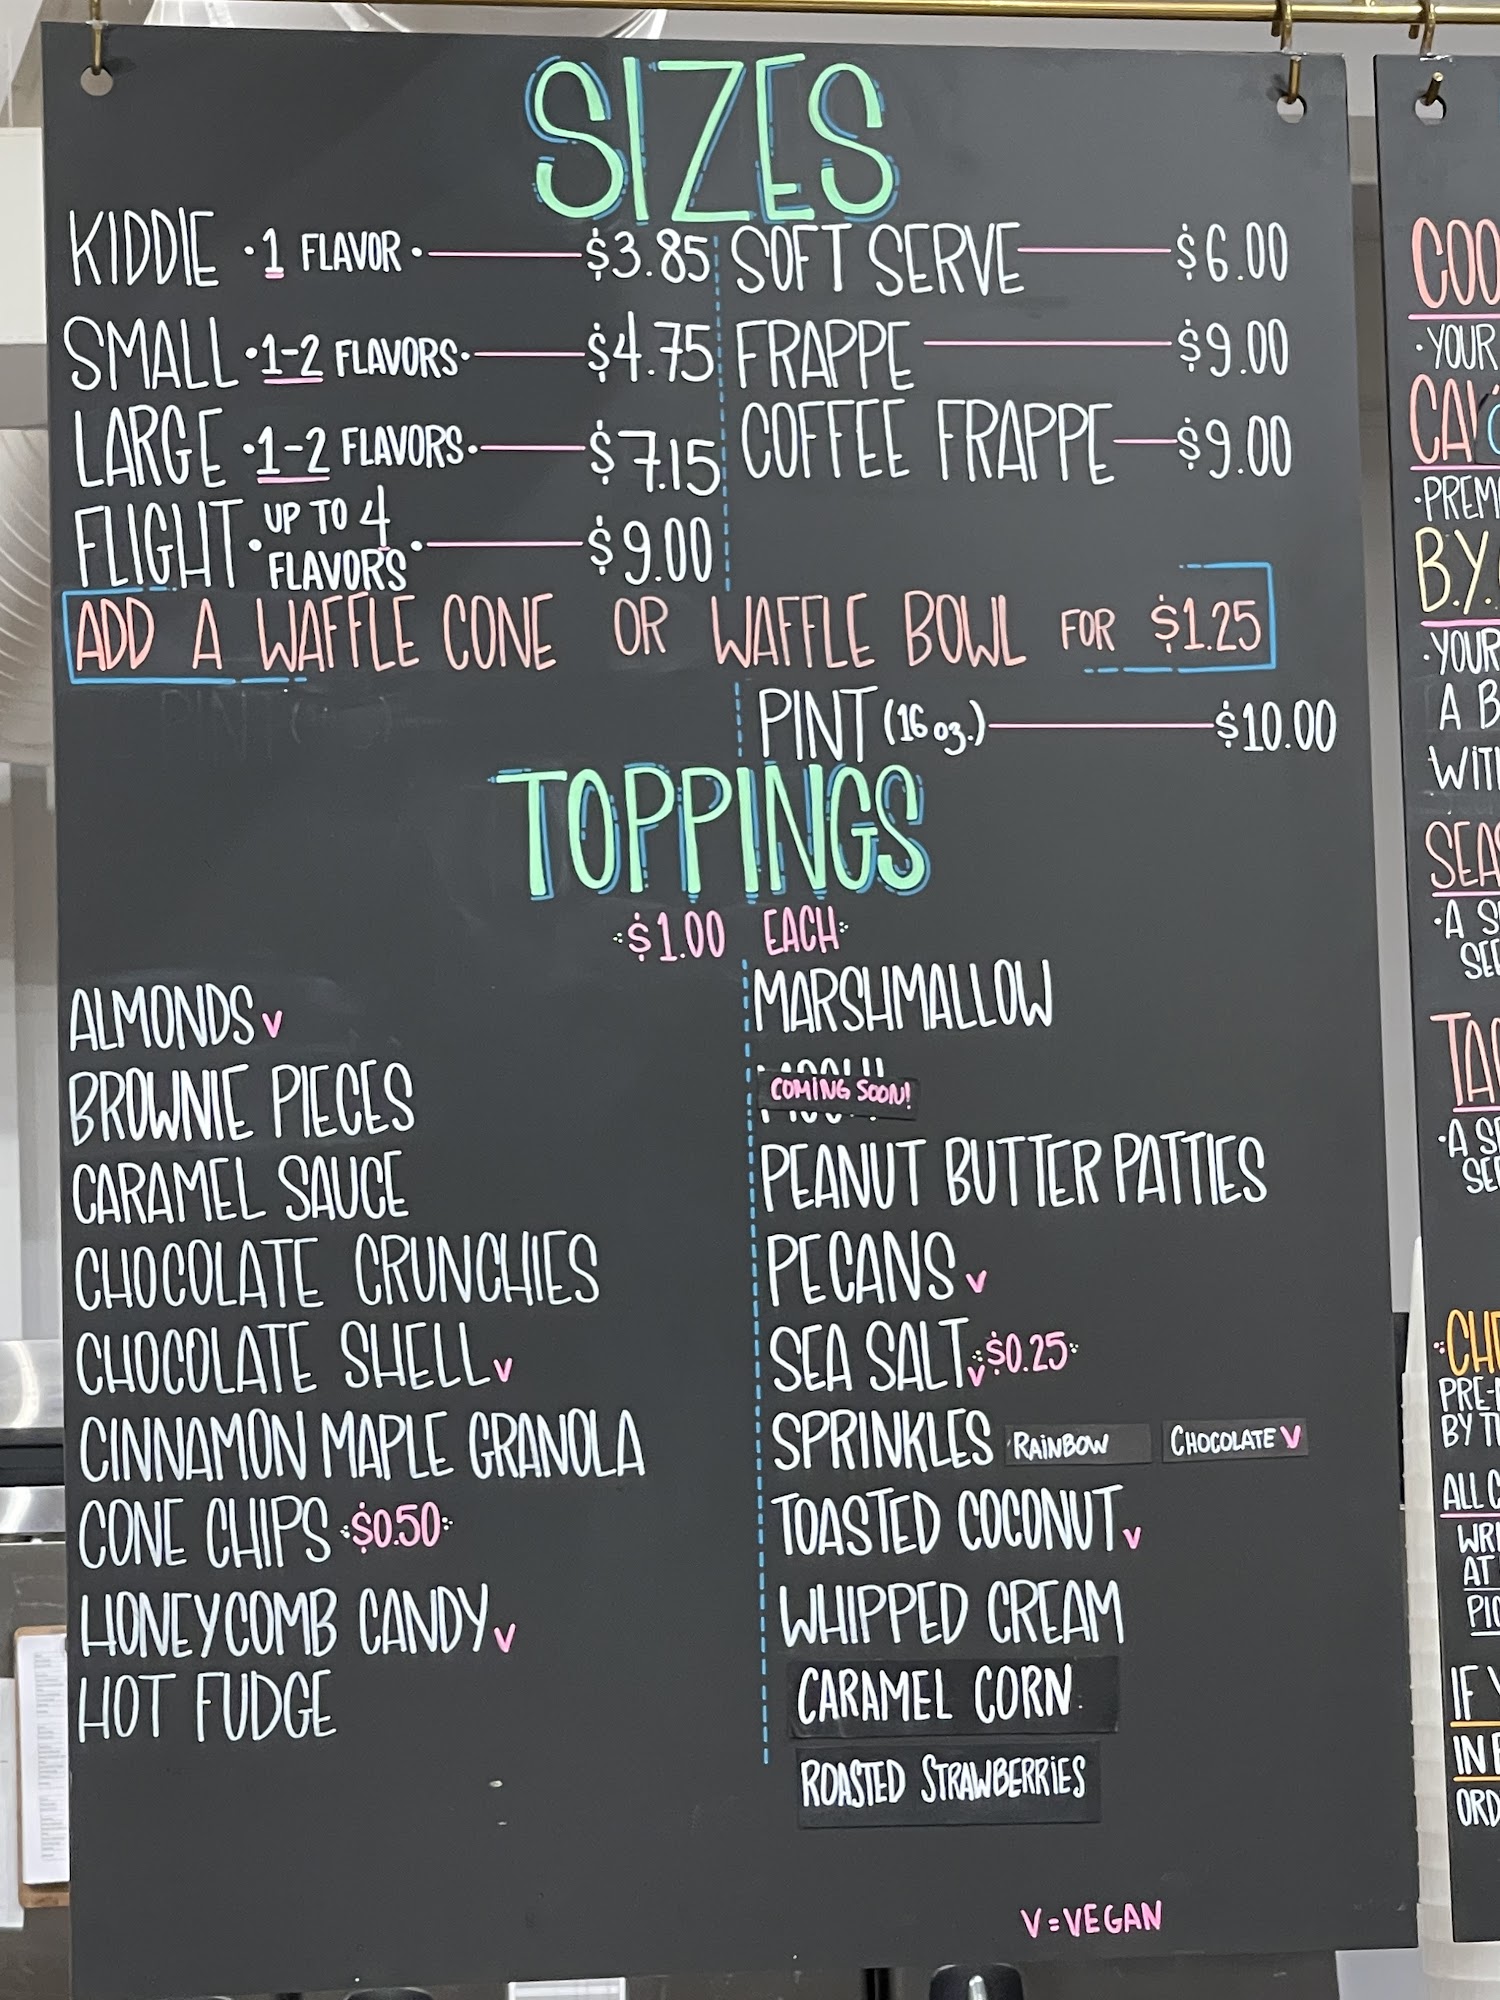 SIZES
KIDDIE · 1 FLAVOR · $3.85
SMALL · 1-2 FLAVORS · $4.75
LARGE · 1-2 FLAVORS · $7.15
FLIGHT · UP TO 4 FLAVORS · $9.00
SOFT SERVE $6.00
FRAPPE $9.00
COFFEE FRAPPE $9.00
ADD A WAFFLE CONE OR WAFFLE BOWL FOR $1.25
PINT (16 oz.) $10.00
TOPPINGS
$1.00 EACH
ALMONDS V
BROWNIE PIECES
CARAMEL SAUCE
CHOCOLATE CRUNCHIES
CHOCOLATE SHELL V
CINNAMON MAPLE GRANOLA
CONE CHIPS $0.50
HONEYCOMB CANDY V
HOT FUDGE
MARSHMALLOW
COMING SOON!
PEANUT BUTTER PATTIES
PECANS V
SEA SALT V $0.25
SPRINKLES RAINBOW CHOCOLATE V
TOASTED COCONUT V
WHIPPED CREAM
CARAMEL CORN
ROASTED STRAWBERRIES
V = VEGAN
·YOUR
B.Y.
·YOUR
A B
WITH
·A S
·A S
BY T
ALL C
AT
IF Y